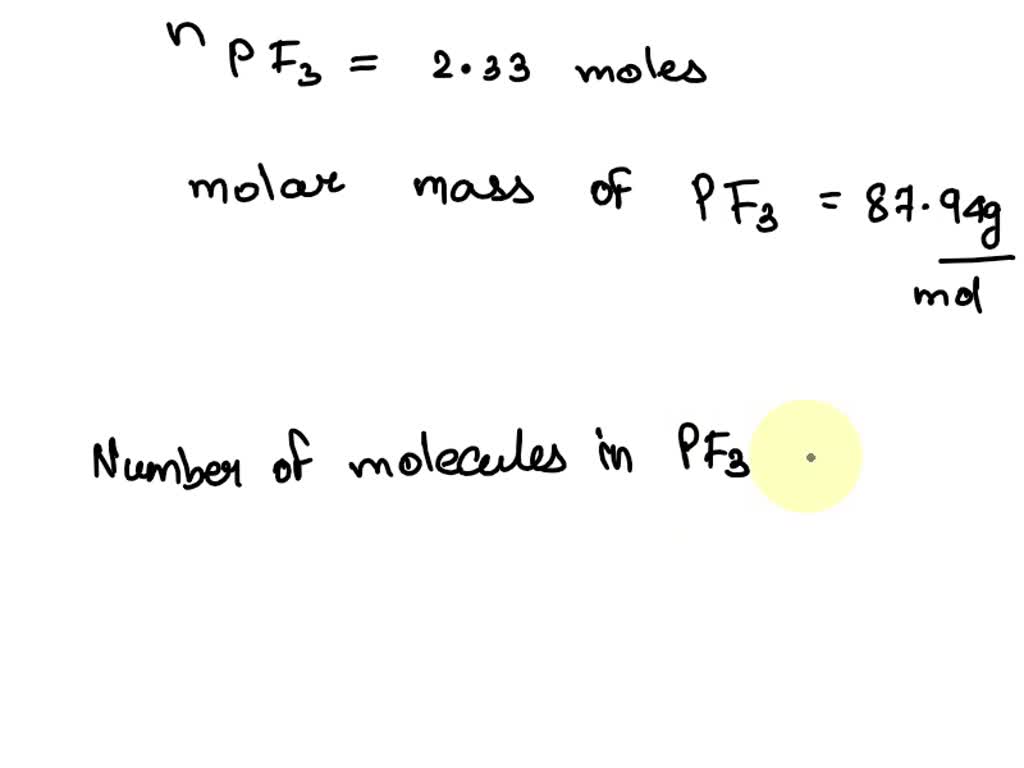 n PF₃ = 2.33 moles
molar mass of PF₃ = 87.94g
mol
Number of molecules in PF₃